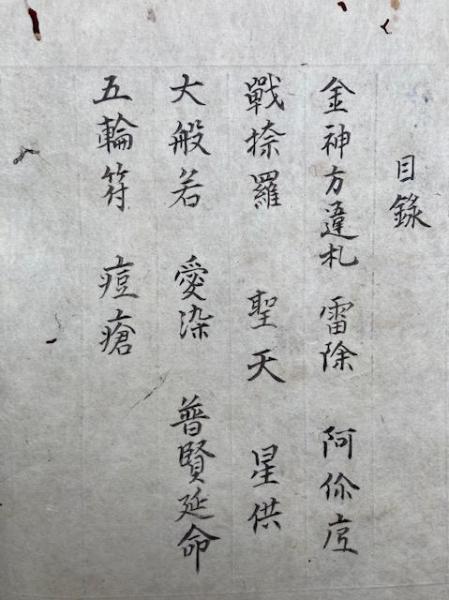 目錄
金神方違札 雷除 阿你底
戰捺羅 聖天 星供
大般若 愛染 普賢延命
五輪符 痘瘡